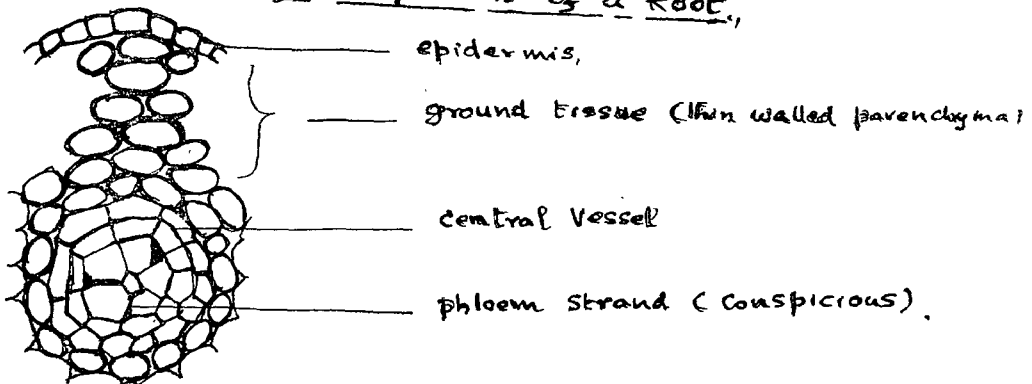 of a Root,
epidermis,
ground tissue (thin walled parenchyma
central vessel
phloem strand (conspicious).